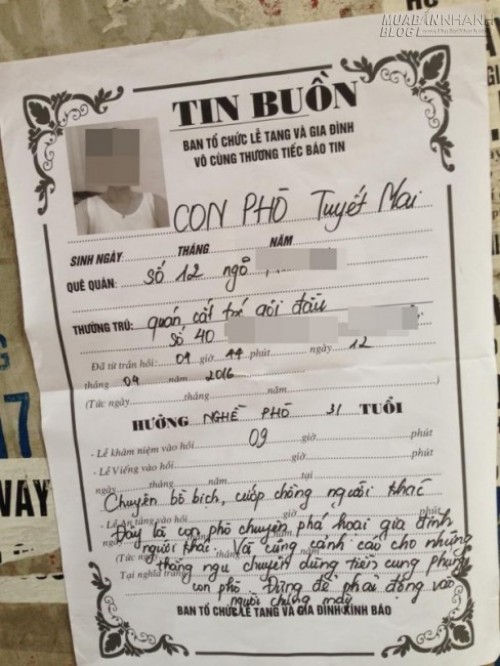 MUABANNHANH
BLOG
TIN BUỒN
BAN TỔ CHỨC LỄ TANG VÀ GIA ĐÌNH
VÔ CÙNG THƯƠNG TIẾC BÁO TIN
CON PHÒ Tuyết Mai
SINH NGÀY THÁNG NĂM
QUÊ QUÁN: Số 12 ngõ
THƯỜNG TRÚ: quán cắt tré gội đầu
Số 40
Đã từ trần hồi: 09 giờ 44 phút ngày 12
tháng 04 năm 2016
(Tức ngày tháng năm )
HƯỞNG NGHỀ PHÒ 31 TUỔI
- Lễ khâm niệm vào hồi 09 giờ phút
- Lễ Viếng vào hồi giờ phút
ngày tháng năm tại
Chuyên bồ bịch, cướp chồng người khác
- Lễ An táng vào hồi giờ phút
Đây là con phò chuyên phá hoại gia đình
(Tức ngày
người khác. Và cũng cảnh cáo cho những
Tại nghĩa trang
thằng ngu chuyên dùng tiền cung phụng
con phò. Đừng để phải động vào
người chúng mày
BAN TỔ CHỨC LỄ TANG VÀ GIA ĐÌNH KÍNH BÁO
17
WAY